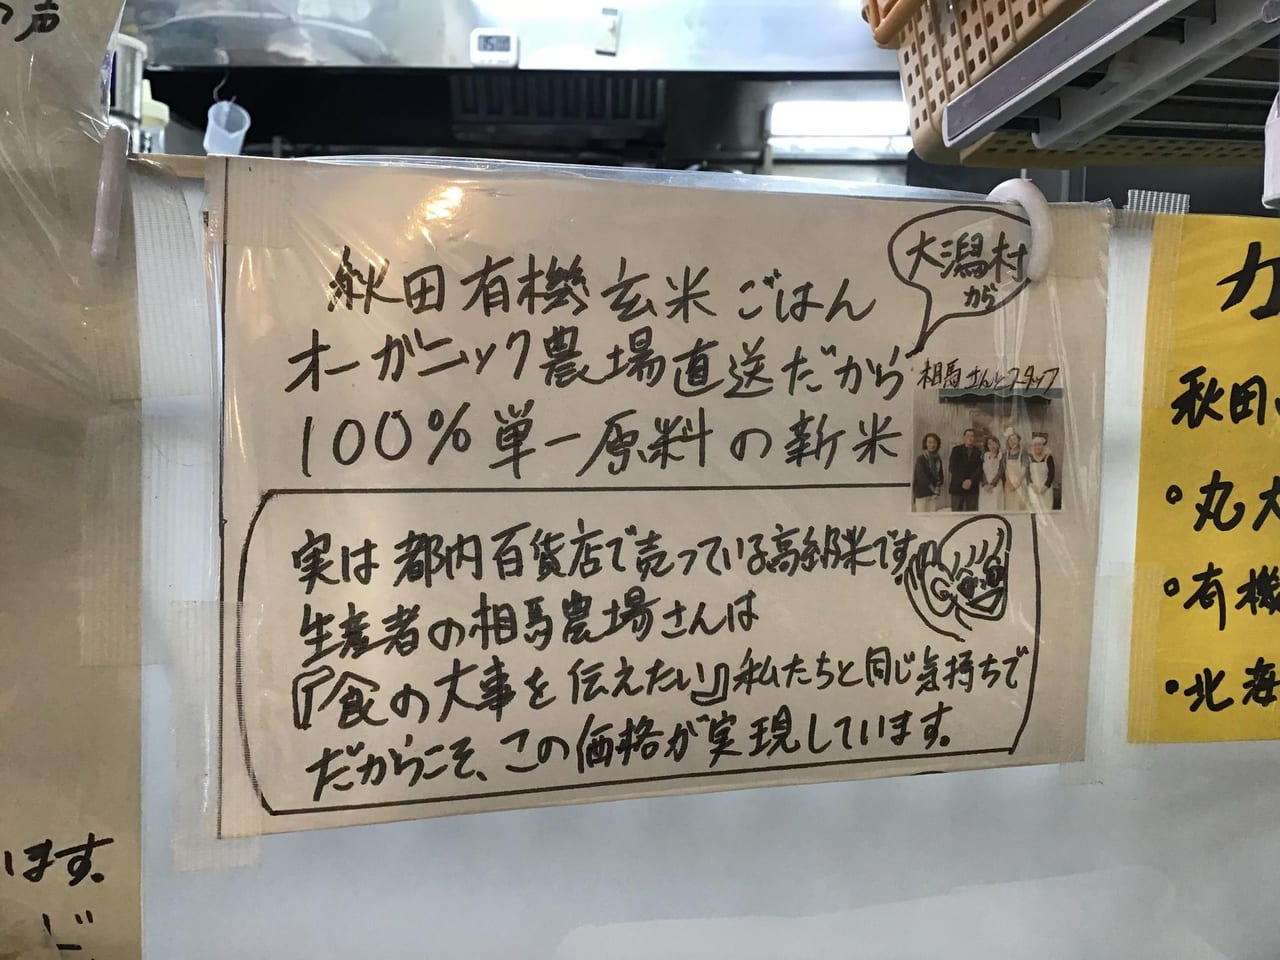 の声
 います。
大潟村
から
秋田有機玄米ごはん
オーガニック農場直送だから
100%単一原料の新米
相馬さんとスタッフ
実は都内百貨店で売っている高級米です
生産者の相馬農場さんは
『食の大事を伝えたい』私たちと同じ気持ちで
だからこそ、この価格が実現しています。
カ
秋田
・丸大
・有機
・北海